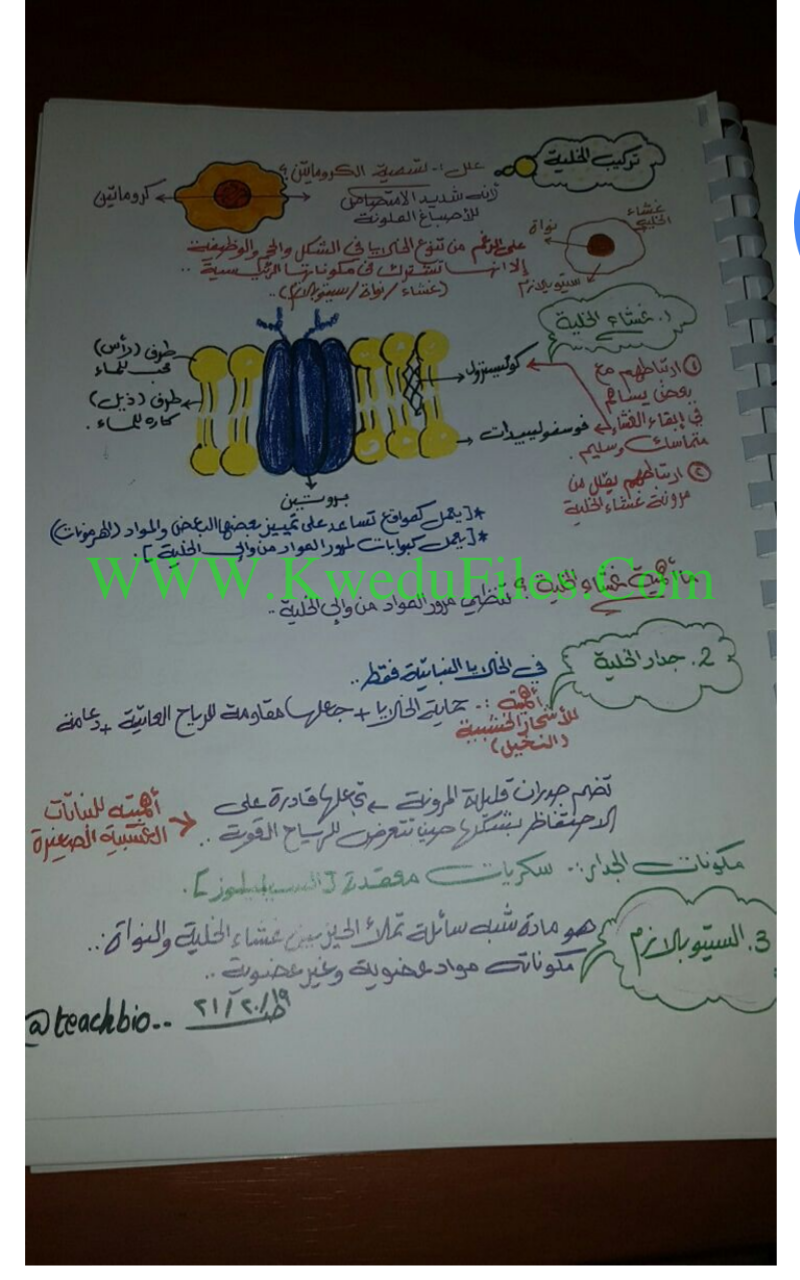 تركيب الخلية
علل :- تسمية الكروماتين ؟
لأنه شديد الامتصاص
للأصباغ الملونة
كروماتين
غشاء
الخلية
نواة
ستيوبلازم
على الرغم من تنوع الخلايا في الشكل والحجم والوظيفة
إلا انها تشترك في مكوناتها الرئيسية ..
(غشاء / نواة / سيتوبلازم) ..
1. غشاء الخلية
طرف (رأس)
محب للماء
طرف (ذيل)
كاره للماء .
كوليسترول
فوسفوليبيدات
بروتين
① ارتباطهم مع
بعض يساهم
في إبقاء الغشاء
متماسك وسليم .
② ارتباطهم يقلل من
مرونة غشاء الخلية
*[يعمل كمواقع تساعد على تمييز بعضها البعض والمواد (الهرمونات)
*[يعمل كبوابات لمرور المواد من وإلى الخلية].
WWW.KweduFiles.Com
ما أهمية غشاء الخلية ؟ تنظيم مرور المواد من وإلى الخلية ..
2. جدار الخلية
في الخلايا النباتية فقط ..
أهميته :- حماية الخلايا + جعلها مقاومة للرياح العاتية + دعامة
للأشجار الخشبية
(النخيل)
أهميته للنباتات
العشبية الصغيرة
تضم جدران قليلة المرونة تجعلها قادرة على
الاحتفاظ بشكلها حين تتعرض للرياح القوية ..
مكونات الجدار :- سكريات معقدة [السيليلوز].
3. السيتوبالازم
هو مادة شبه سائلة تملأ الحيز بين غشاء الخلية والنواة ..
مكوناته مواد عضوية وغير عضوية ..
@teachbio..